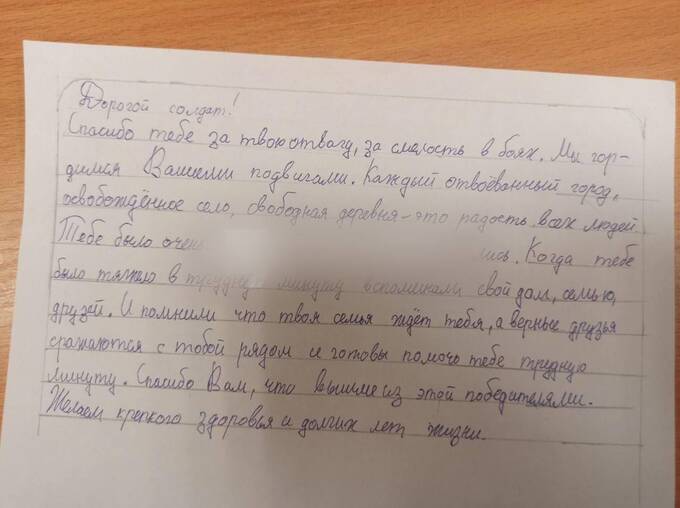 Дорогой солдат!
Спасибо тебе за твою отвагу, за смелость в боях. Мы гор-
димся Вашими подвигами. Каждый отвоёванный город,
освобождённое село, свободная деревня-это радость всех людей
Тебе было очень . Когда тебе
было тяжело в трудную минуту вспоминали свой дом, семью,
друзей. И помнили что твоя семья ждёт тебя, а верные друзья
сражаются с тобой рядом и готовы помочь тебе трудную
минуту. Спасибо Вам, что вышли из этой победителями.
Желаем крепкого здоровья и долгих лет жизни.